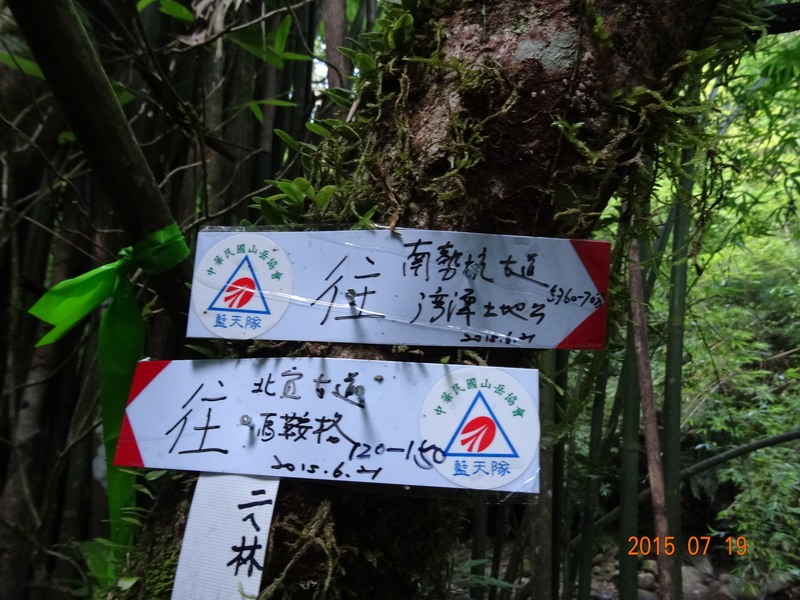 中華民國山岳協會
藍天隊
往
南勢坑古道
灣潭土地公
2015.6.21
往
北宜古道
馬鞍格
120-150
2015.6.21
中華民國山岳協會
藍天隊
林
2015 07 19